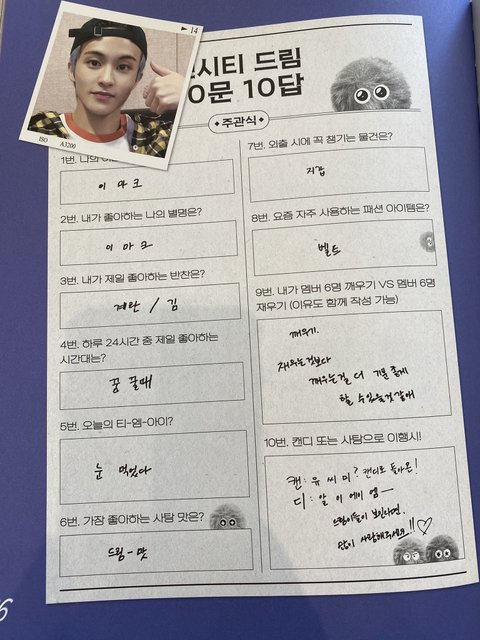 ▶ 14
ISO A3200
시티 드림
0문 10답
주관식
1번. 나의
이 마크
2번. 내가 좋아하는 나의 별명은?
이 마크
3번. 내가 제일 좋아하는 반찬은?
계란 / 김
4번. 하루 24시간 중 제일 좋아하는
시간대는?
꿈 꿀때
5번. 오늘의 티-엠-아이?
눈 먹었다
6번. 가장 좋아하는 사탕 맛은?
드림-맛
7번. 외출 시에 꼭 챙기는 물건은?
지갑
8번. 요즘 자주 사용하는 패션 아이템은?
벨트
9번. 내가 멤버 6명 깨우기 VS 멤버 6명
재우기 (이유도 함께 작성 가능)
깨우기.
재우는것보다
깨우는걸 더 기분 좋게
할 수있을것 같아
10번. 캔디 또는 사탕으로 이행시!
캔: 유 씨 미? 캔디로 돌아온!
디: 알 이 에이 엠—
드림이들이 보인다면.
많이 사랑해주세요!!♡
6